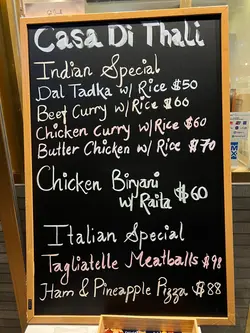 Casa Di Thali
Indian Special
Dal Tadka w/ Rice $50
Beef Curry w/ Rice $60
Chicken Curry w/ Rice $60
Butler Chicken w/ Rice $70
Chicken Biryani
w/ Raita $60
Italian Special
Tagliatelle Meatballs $98
Ham & Pineapple Pizza $88